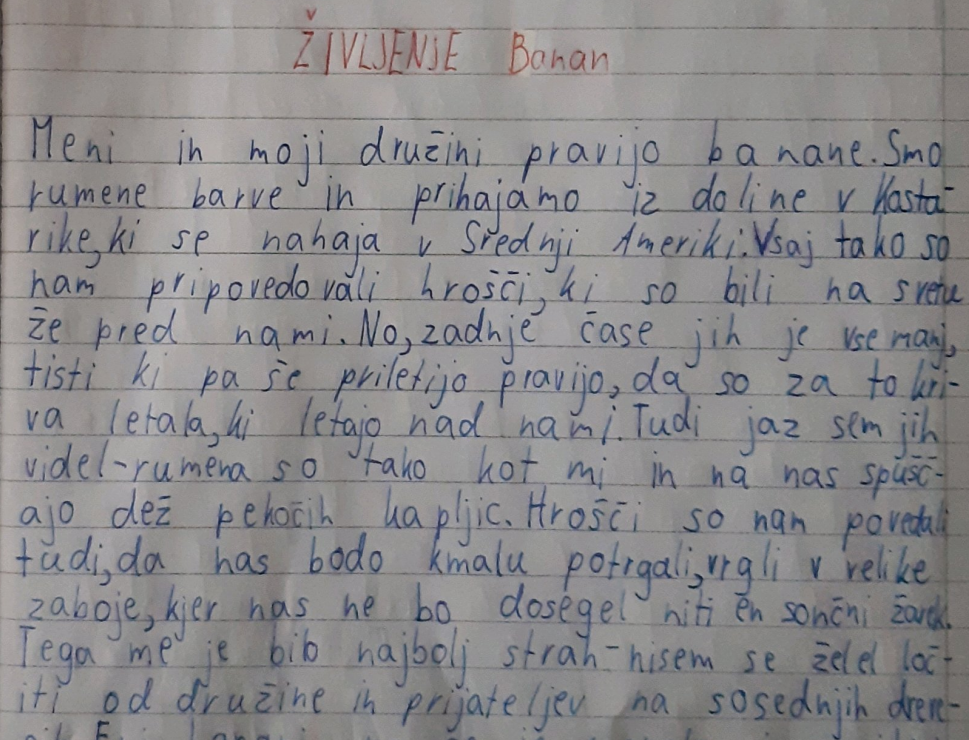 ŽIVLJENJE Banan
Meni in moji družini pravijo banane. Smo
rumene barve in prihajamo iz doline v Kosta-
rike, ki se nahaja v Srednji Ameriki. Vsaj tako so
nam pripovedovali hrošči, ki so bili na svetu
že pred nami. No, zadnje čase jih je vse manj,
tisti ki pa še priletijo pravijo, da so za to kri-
va letala, ki letajo nad nami. Tudi jaz sem jih
videl-rumena so tako kot mi in na nas spušč-
ajo dež pekočih kapljic. Hrošči so nam povedali
tudi, da nas bodo kmalu potrgali, vrgli v velike
zaboje, kjer nas ne bo dosegel niti en sončni žarek.
Tega me je bilo najbolj strah-nisem se želel loč-
iti od družine in prijateljev na sosednjih dreve-